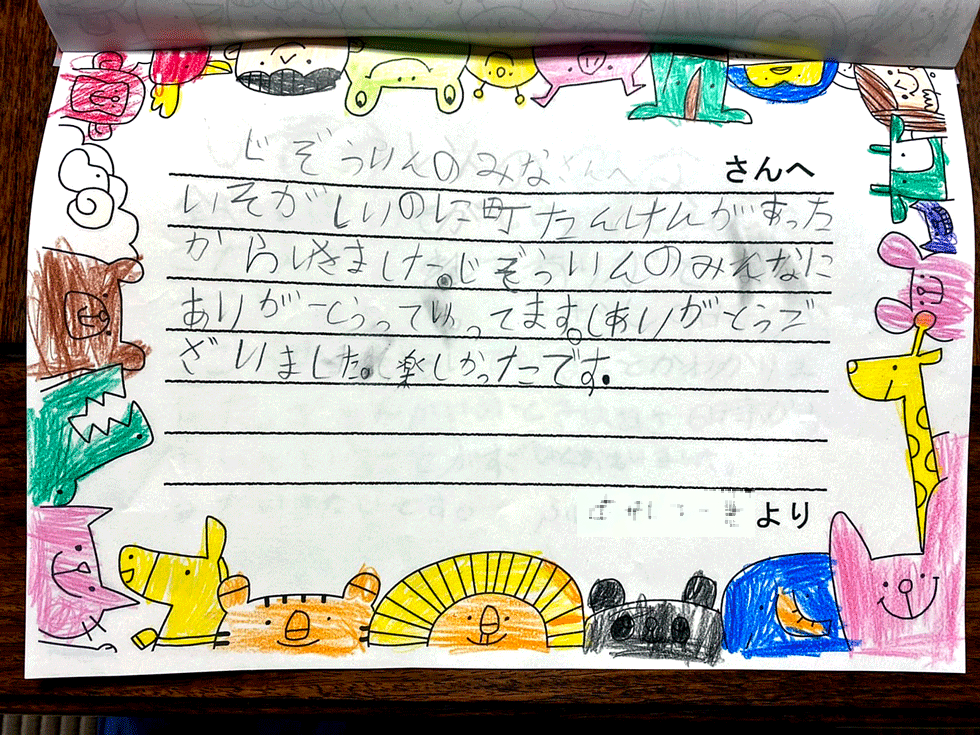 じぞういんのみなさんへ さんへ
いそがしいのに町たんけんがあった
からいきました。じぞういんのみんなに
ありがとうってゆってます。ありがとうご
ざいました。楽しかったです。
より